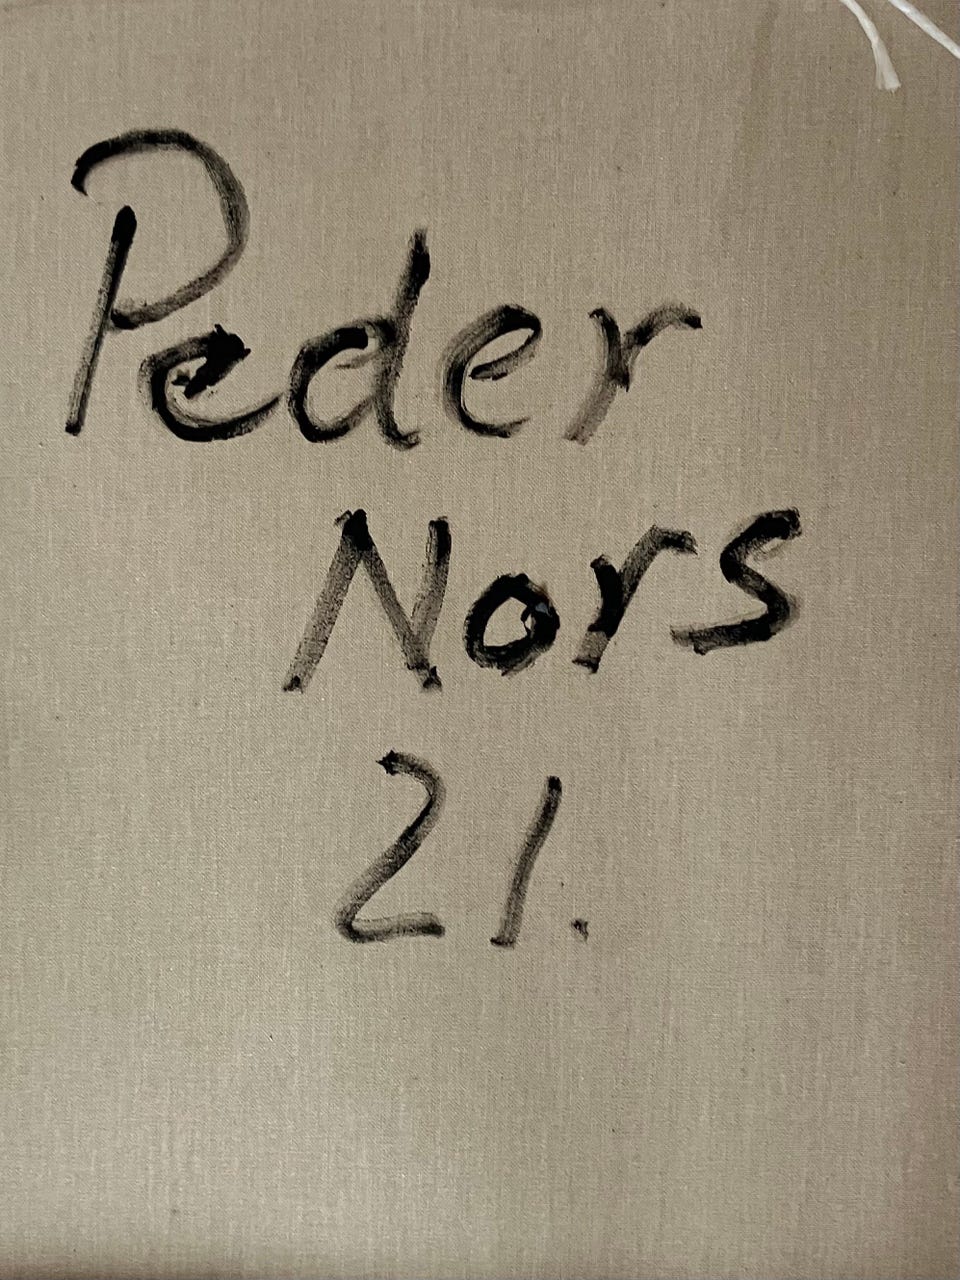 Peder
Nors
21.